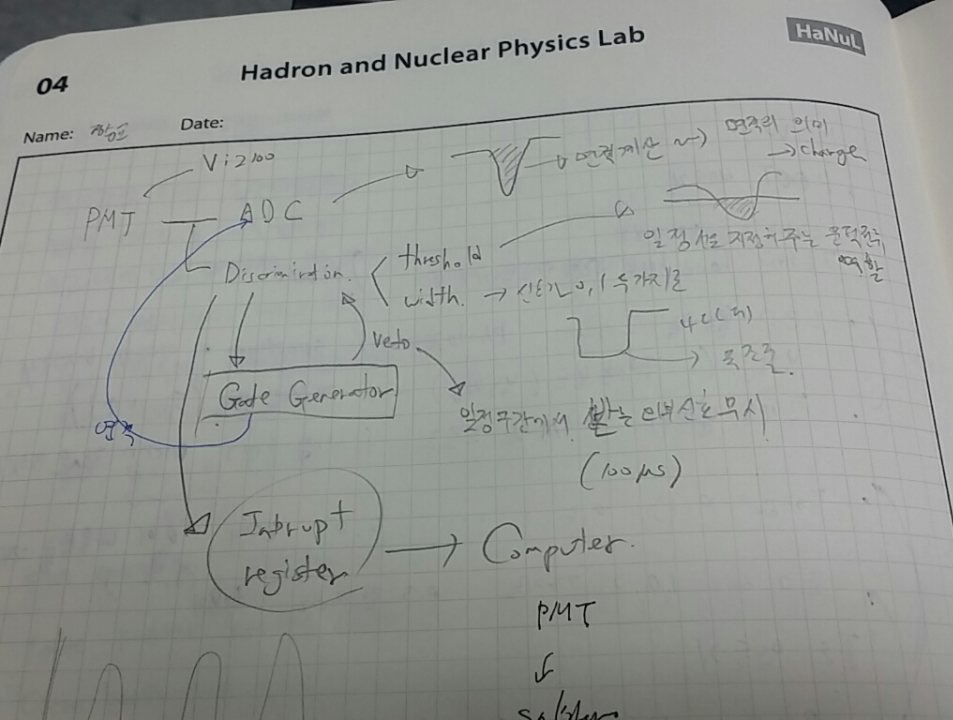 HaNuL
04
Hadron and Nuclear Physics Lab
Name:
Date:
Vi2100
PMT
ADC
면적계산
면적의 의미
→ charge
Discrimination.
threshold
width. → 신호가 0, 1 두가지로
일정 선을 지정해주는 문턱
역할
Veto
Gate Generator
일정구간에서 받는 외부신호 무시
(100 μs)
Intrrupt
register
→ Computer.
PMT